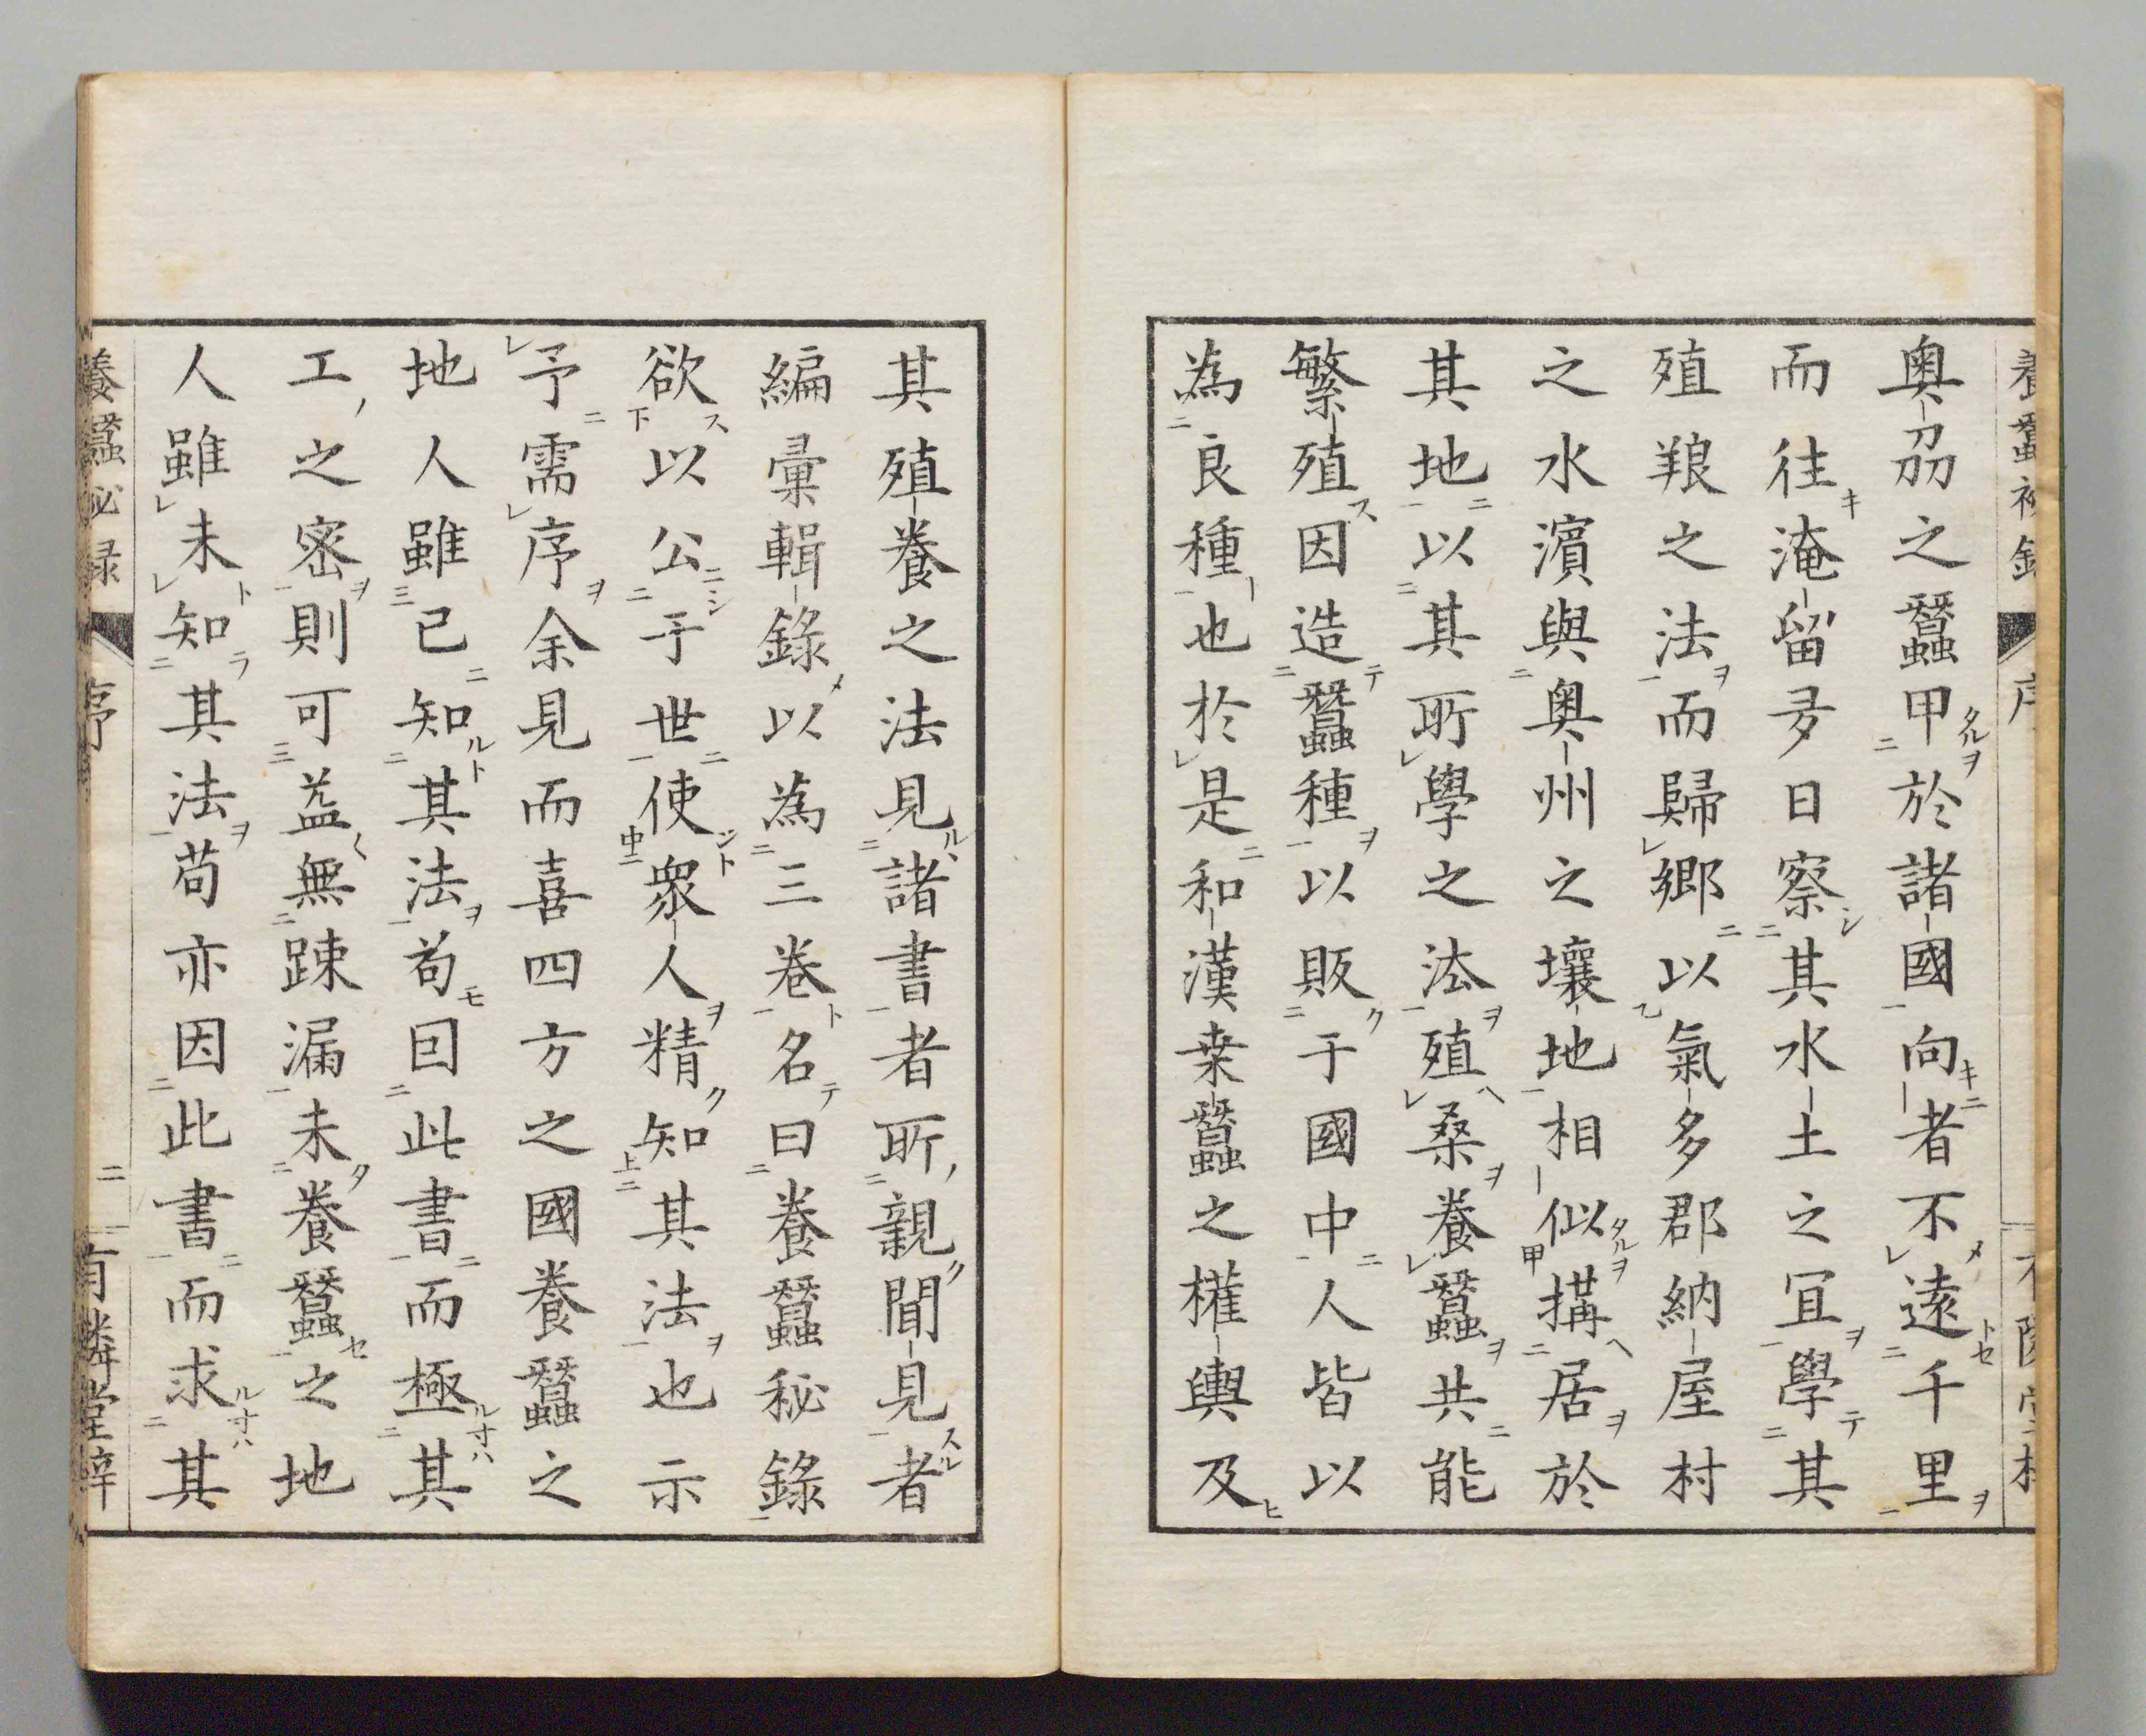 奧刕之蠶甲於諸國向者不遠千里
而往淹留多日察其水土之宜學其
殖養之法而歸鄉以氣多郡納屋村
之水濱與奧州之壤地相似搆居於
其地以其所學之法殖桑養蠶共能
繁殖因造蠶種以販于國中人皆以
為良種也於是和漢桒蠶之權輿及
其殖養之法見諸書者所親聞見者
編彙輯錄以為三卷名曰養蠶秘錄
欲以公于世使衆人精知其法也示
予需序余見而喜四方之國養蠶之
地人雖已知其法苟因此書而極其
工之密則可益無踈漏未養蠶之地
人雖未知其法苟亦因此書而求其
養蠶秘録 序 二 有隣堂梓